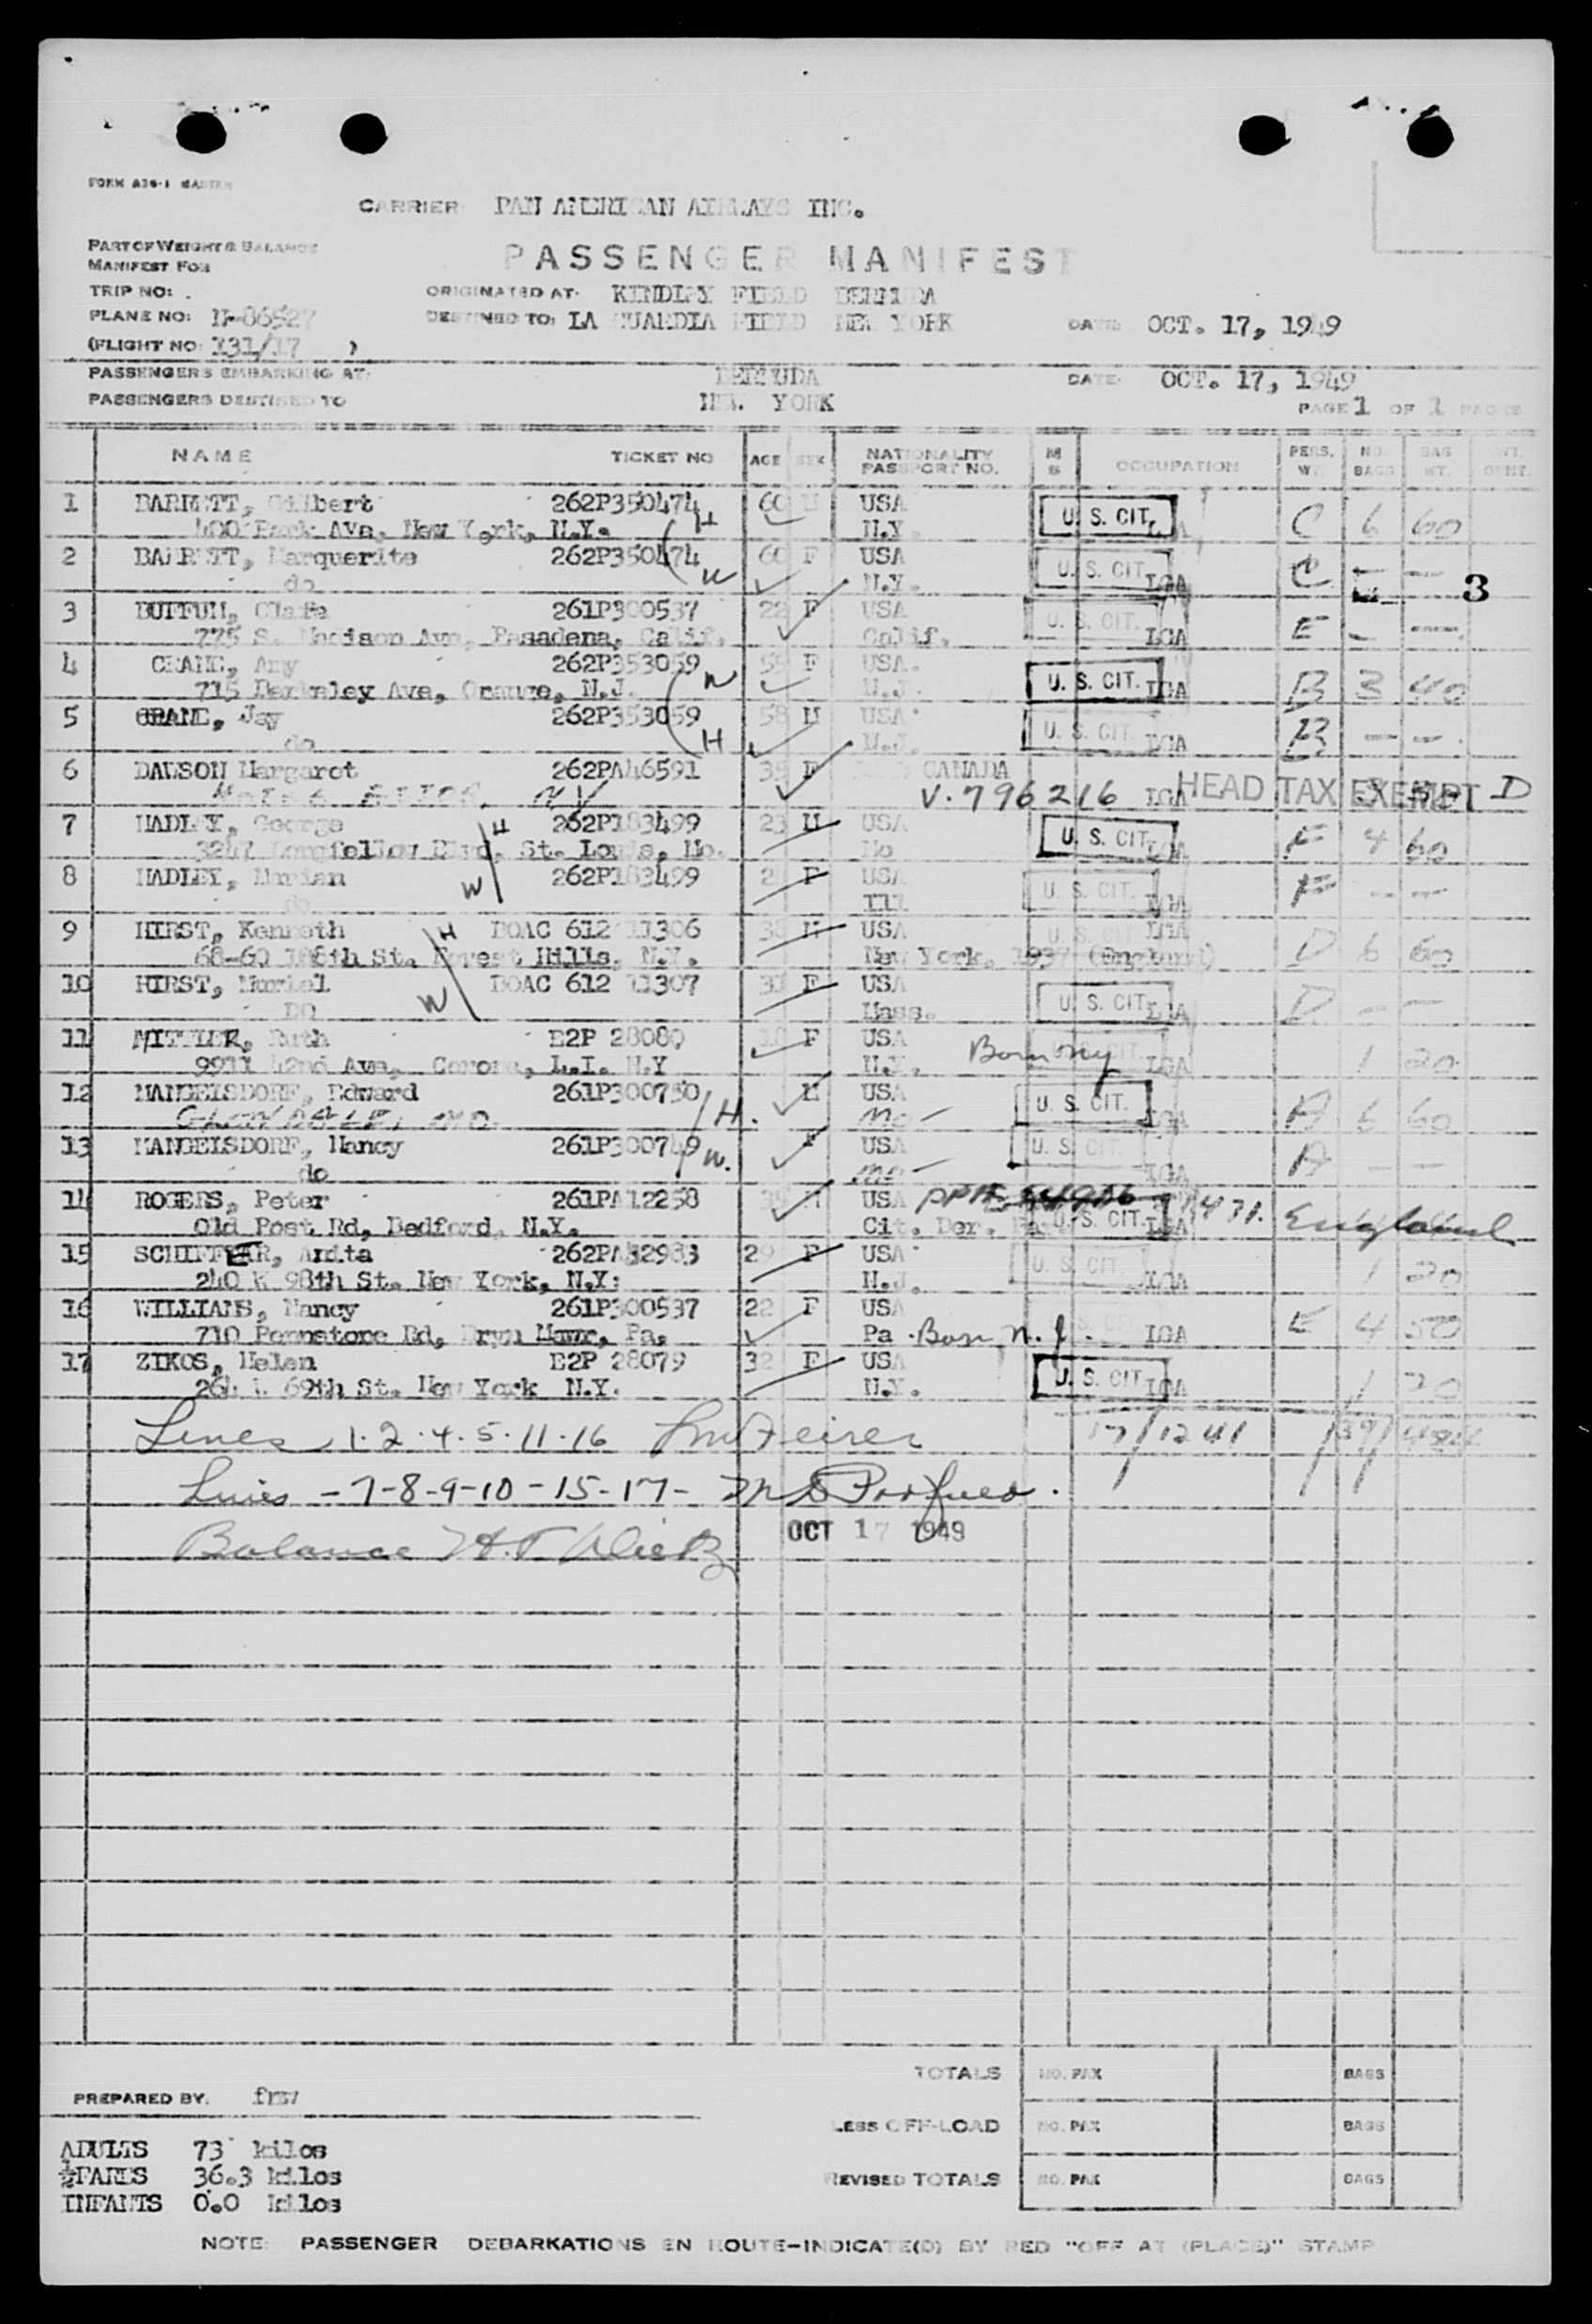 FORM A36-1 MASTER
CARRIER PAN AMERICAN AIRWAYS INC.
PART OF WEIGHT & BALANCE
MANIFEST FOR
PASSENGER MANIFEST
TRIP NO:
ORIGINATED AT: KINDLEY FIELD BERMUDA
PLANE NO: N-86527
DESTINED TO: LA GUARDIA FIELD NEW YORK
DATE OCT. 17, 1949
(FLIGHT NO: 131/17 )
PASSENGERS EMBARKING AT: BERMUDA DATE OCT. 17, 1949
PASSENGERS DESTINED TO NEW YORK
PAGE 1 OF 1 PAGES
NAME TICKET NO AGE SEX NATIONALITY PASSPORT NO. M S OCCUPATION PERS. WT. NO. BAGS BAG WT. WT. CENT.
1 BARRETT, Gilbert 262P350474 60 M USA U. S. CIT. C 6 60
400 Park Ave, New York, N.Y. H N.Y. LGA
2 BARRETT, Marguerite 262P350474 60 F USA U. S. CIT. C — 3
do W N.Y. LGA
3 BUFFUM, Claire 261P300537 22 F USA U. S. CIT. E - ---
775 S. Madison Ave, Pasadena, Calif. Calif. LGA
4 CRANE, Amy 262P353059 55 F USA. U. S. CIT. B 3 40
715 Berkeley Ave, Orange, N.J. W N.J. LGA
5 CRANE, Jay 262P353059 58 M USA U. S. CIT. B — —
do H N.J. LGA
6 DAWSON Margaret 262PA46591 35 F CANADA
N.Y. V. 796216 LGA HEAD TAX EXEMPT D
7 HADLEY, George 262P183499 23 M USA U. S. CIT. F 4 60
3247 Longfellow Blvd, St. Louis, Mo. H Mo LGA
8 HADLEY, Marian 262P183499 2 F USA U. S. CIT. F - —
do W Ill LGA
9 HIRST, Kenneth BOAC 612 11306 38 M USA U. S. CIT. LGA D 6 60
68-60 108th St. Forest Hills, N.Y. H New York, 1937 (England)
10 HIRST, Muriel BOAC 612 11307 F USA U. S. CIT. D — —
DO W Mass. LGA
11 Ruth E2P 28080 18 F USA
9911 42nd Ave, Corona, L.I. N.Y N.Y. Born NY LGA 1 20
12 MANGELSDORF, Edward 261P300750 M USA U. S. CIT. A 6 60
GLENDALE, MO. H. Mo — LGA
13 MANGELSDORF, Nancy 261P300749 F USA U. S. CIT. A — —
do W. Mo — LGA
14 ROGERS, Peter 261PA12258 39 M USA U. S. CIT. England
Old Post Rd, Bedford, N.Y. Cit. Der. LGA
15 SCHIFFER, Anita 262PA32983 29 F USA U. S. CIT. 1 20
240 W 98th St. New York, N.Y. N.J. LGA
16 WILLIAMS, Nancy 261P300537 22 F USA E 4 50
710 Pennstone Rd, Bryn Mawr, Pa, Pa Born N.J. LGA
17 ZIKOS, Helen E2P 28079 32 F USA U. S. CIT. 1 20
264 W. 69th St. New York N.Y. N.Y. LGA
Lines 1.2.4.5.11.16 17/1241 /39/
Lines -7-8-9-10-15-17-
Balance OCT 17 1949
TOTALS NO. PAX BAGS
PREPARED BY.
LESS OFF-LOAD NO. PAX BAGS
ADULTS 73 kilos
½FARES 36.3 kilos
REVISED TOTALS NO. PAX BAGS
INFANTS 0.0 kilos
NOTE: PASSENGER DEBARKATIONS EN ROUTE—INDICATE(D) BY RED "OFF AT (PLACE)" STAMP